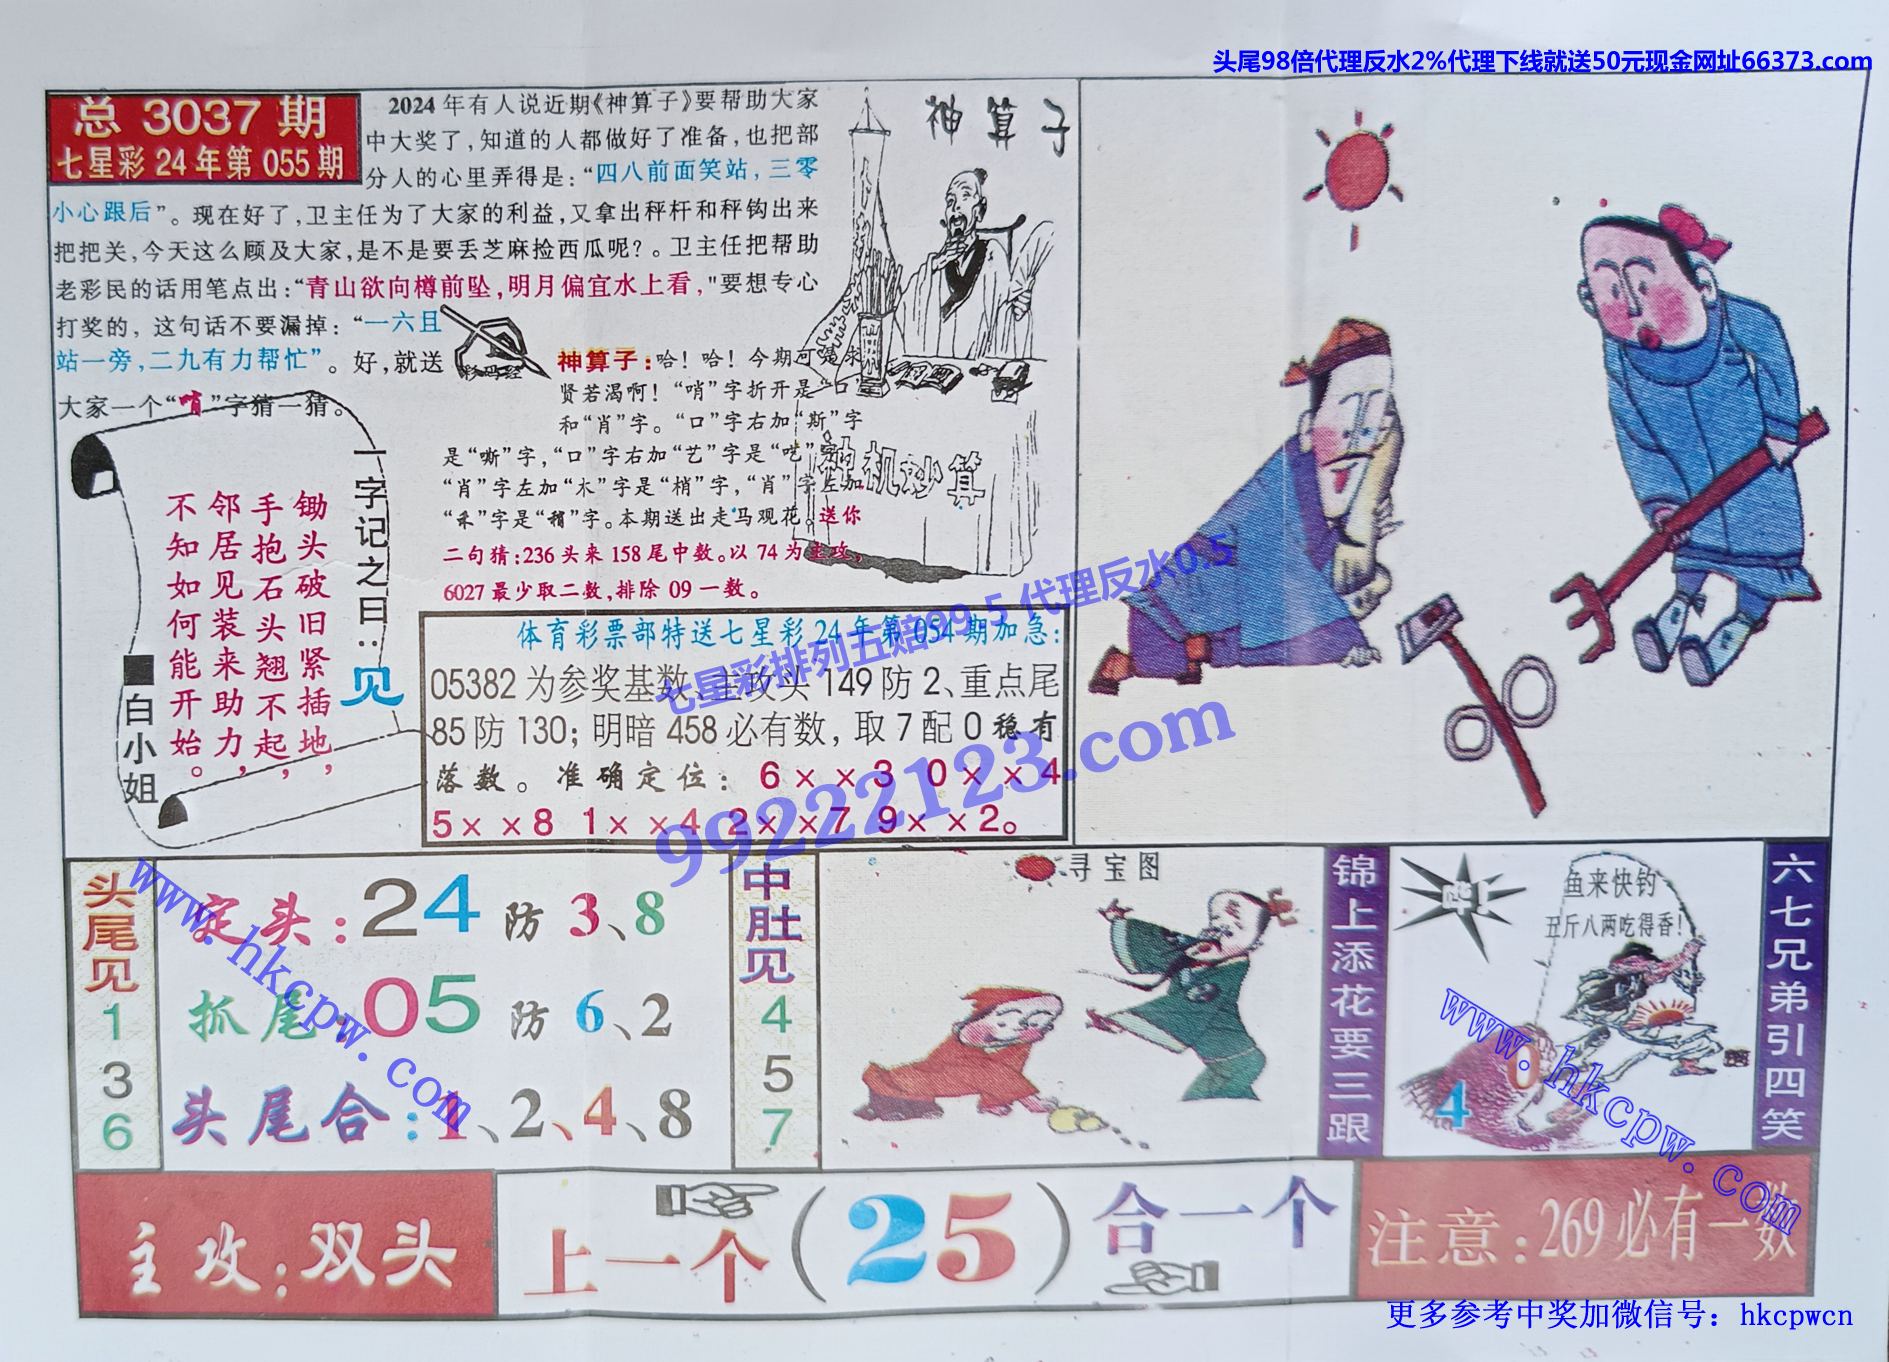 头尾98倍代理反水2%代理下线就送50元现金网址66373.com
总 3037 期
七星彩 24 年第 055 期
2024 年有人说近期《神算子》要帮助大家
中大奖了，知道的人都做好了准备，也把部
分人的心里弄得是：“四八前面笑站，三零
小心跟后”。现在好了，卫主任为了大家的利益，又拿出秤杆和秤钩出来
把把关，今天这么顾及大家，是不是要丢芝麻捡西瓜呢？。卫主任把帮助
老彩民的话用笔点出：“青山欲向樽前坠，明月偏宜水上看，"要想专心
打奖的，这句话不要漏掉：“一六且
站一旁，二九有力帮忙”。好，就送
大家一个“哨”字猜一猜。
彩码经
神算子
神机妙算
神算子：哈！哈！今期可是求
贤若渴啊！“哨”字折开是“口”
和“肖”字。“口”字右加“斯”字
是“嘶”字，“口”字右加“艺”字是“呓”字
“肖”字左加“木”字是“梢”字，“肖”字左加
“禾”字是“稍”字。本期送出走马观花。送你
二句猜：236 头来 158 尾中数。以 74 为主攻，
6027 最少取二数，排除 09 一数。
一字记之曰：见
锄头破旧紧插地，
手抱石头翘不起，
邻居见装来助力，
不知如何能开始。
■白小姐
体育彩票部特送七星彩 24 年第 054 期加急：
05382 为参奖基数、主攻头 149 防 2、重点尾
85 防 130；明暗 458 必有数，取 7 配 0 稳有
落数。准确定位：6××3 0××4
5××8 1××4 2××7 9××2。
七星彩排列五赔99.5 代理反水0.5
99222123.com
头尾见
1
3
6
定头：24 防 3、8
抓尾：05 防 6、2
头尾合：1、2、4、8
www.hkcpw.com
中肚见
4
5
7
寻宝图
锦上添花要三跟
鱼来快钓
丑斤八两吃得香！
4
0
www.hkcpw.com
六七兄弟引四笑
主攻：双头
上一个（25）合一个
注意：269 必有一数
更多参考中奖加微信号：hkcpwcn